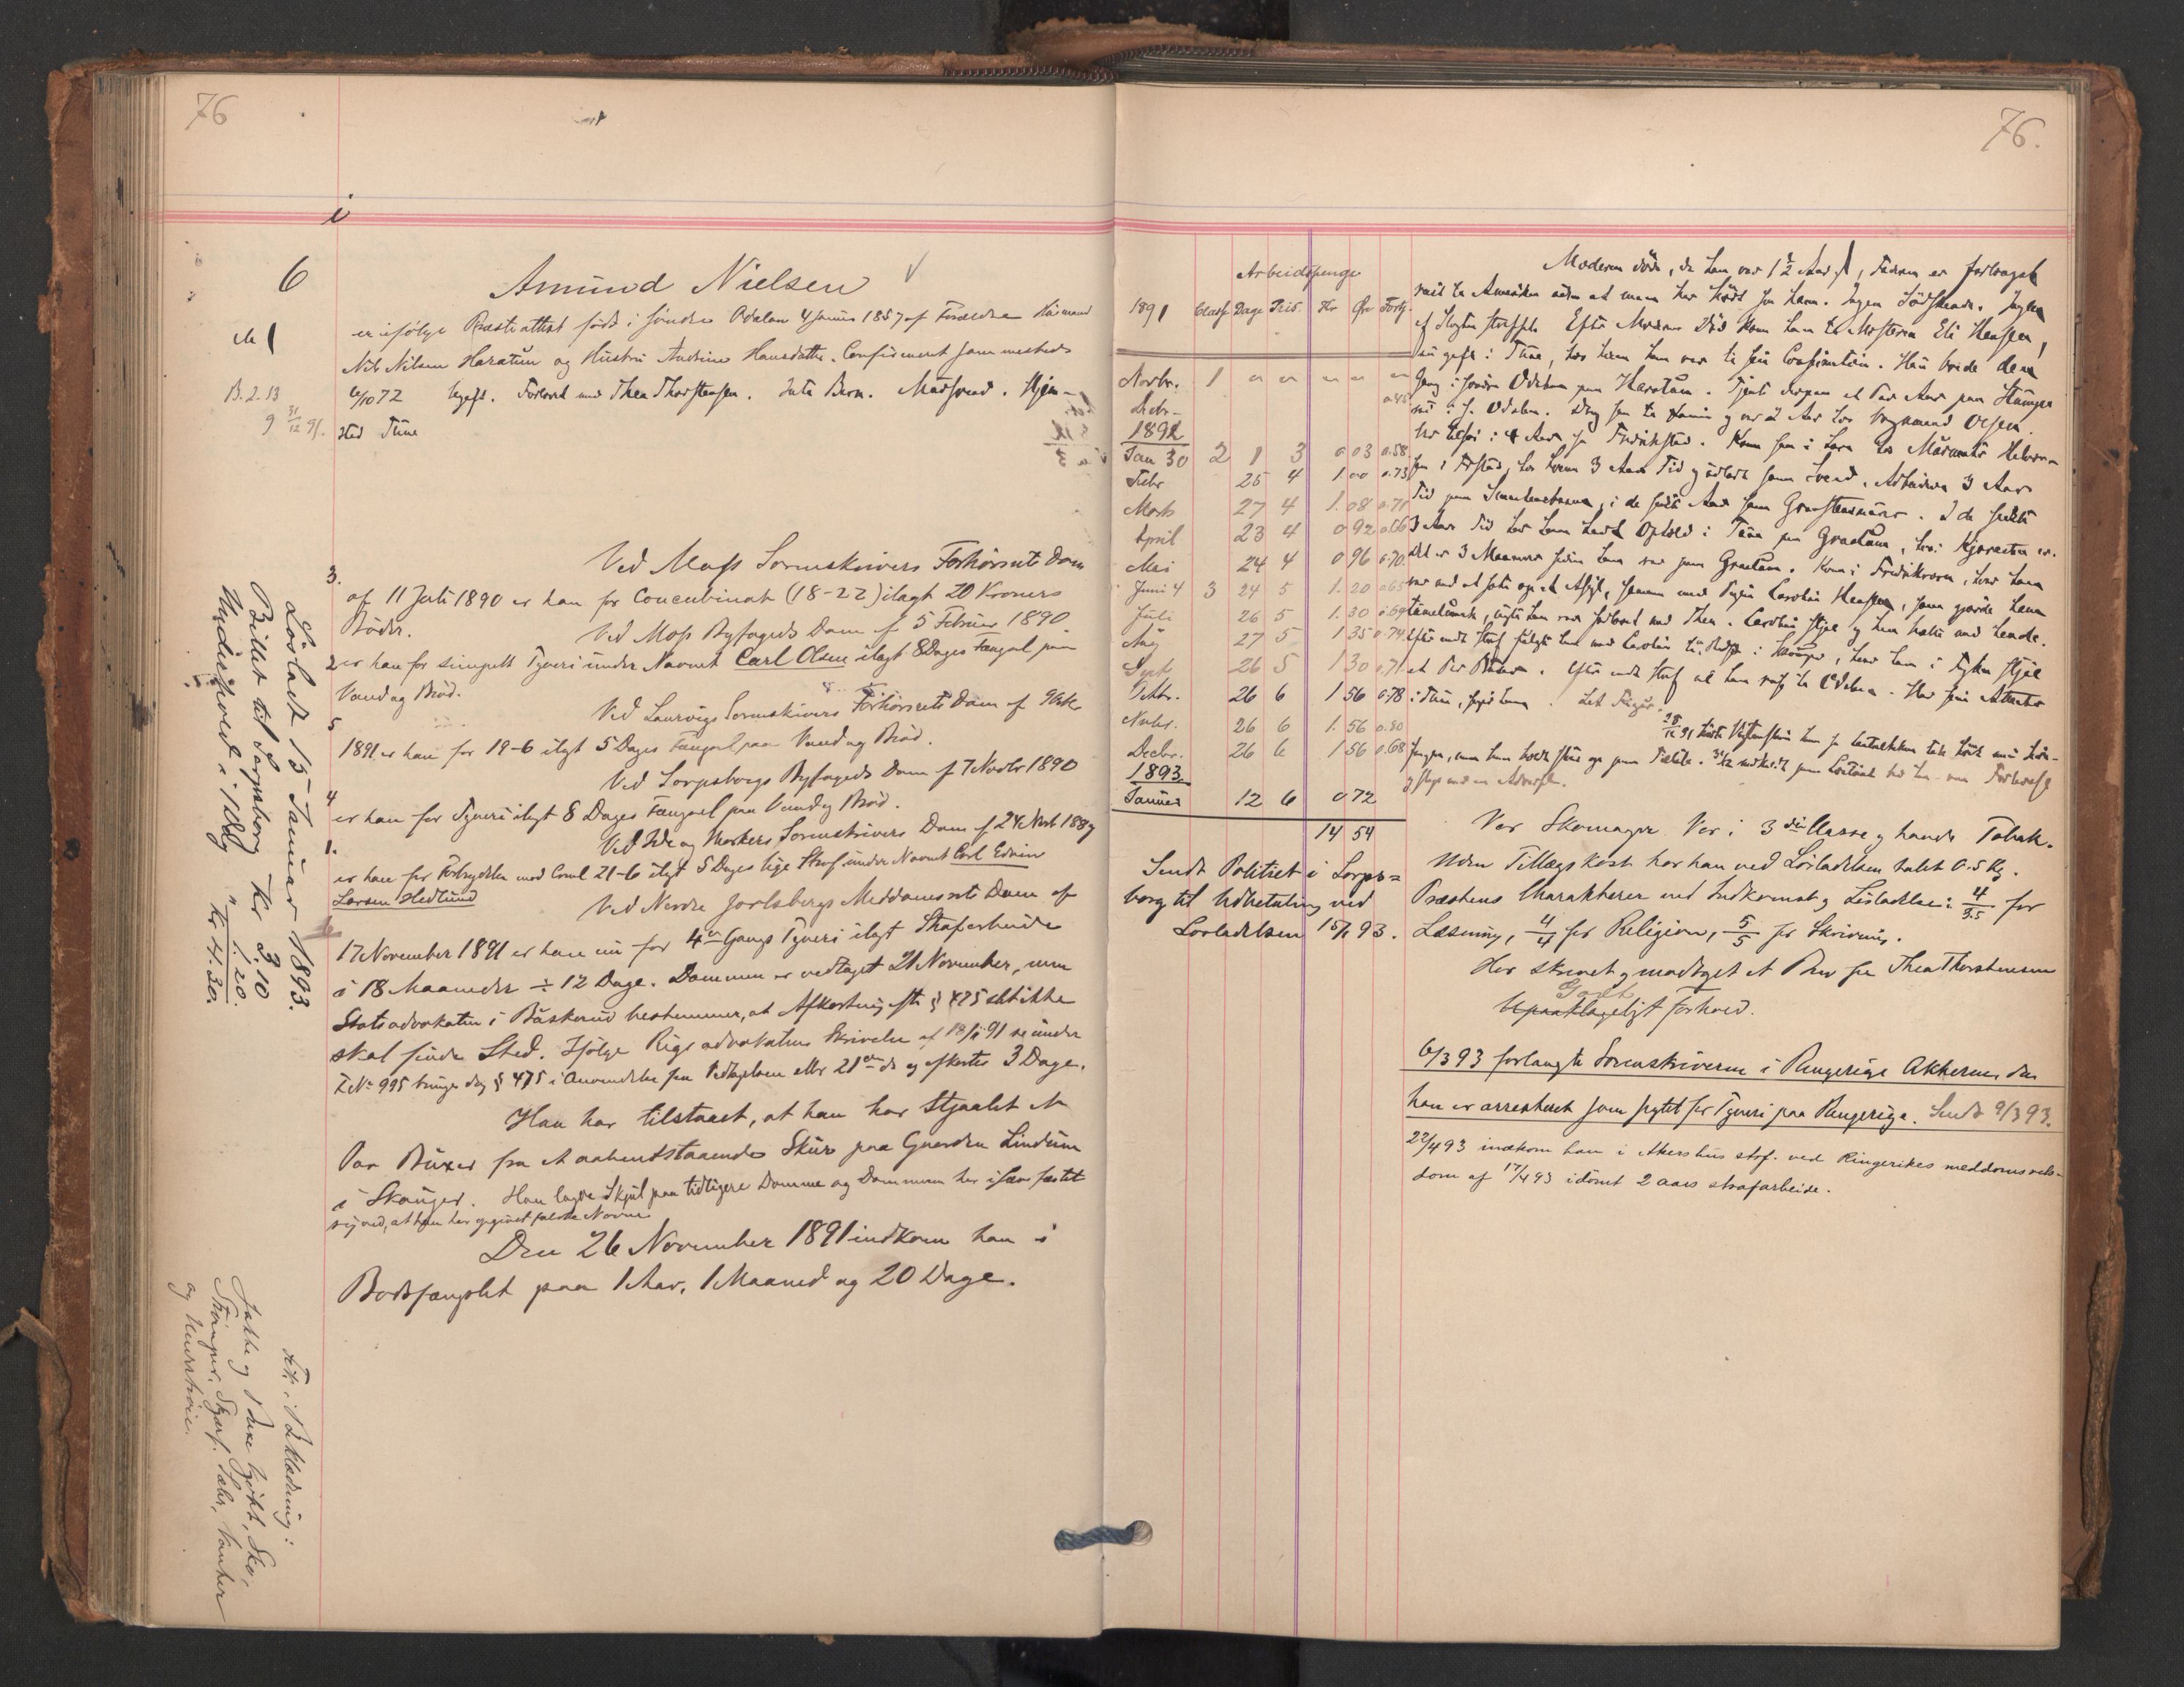 76
i
6
Amund Nielsen
er ifølge Præsteattest født i søndre Odalen 4 Januar 1857 af Forældre Husmand
Nils Nilsen Haratun og Hustru Andrine Hansdatter. Confirmeret sammesteds
6/10 72 ugift. Forlovet med Thea Thorstensen. Intet Barn. Mursvend. Hjem-
sted Tune
B. 2. 13
9 31/12 91.
3.
Ved Moss Sorenskrivers Forhørsrets Dom
af 11 Juli 1890 er han for Concubinat (18-22) ilagt 20 Kroners
Bøder.
Ved Moss Byfogeds Dom af 5 Februar 1890
2 er han for simpelt Tyveri under Navnet Carl Olsen ilagt 8 Dages Fængsel paa
Vand og Brød.
5
Ved Laurvigs Sorenskrivers Forhørsrets Dom af
1891 er han for 19-6 ilagt 5 Dages Fængsel paa Vand og Brød.
4
Ved Sarpsborgs Byfogeds Dom af 7 Novbr 1890
er han for Tyveri ilagt 8 Dages Fængsel paa Vand og Brød.
1.
Ved Ide og Markers Sorenskrivers Dom af 24 Novb 1889
er han for Forbrydelse mod Crml 21-6 ilagt 5 Dages lige Straf under Navnet Carl Edvin
Larsen Hedlund
6
Ved Nordre Jarlsbergs Meddomsrets Dom af
17 November 1891 er han nu for 4de Gangs Tyveri ilagt Strafarbeide
i 18 Maaneder ÷ 12 Dage. Dommen er vedtaget 21 November, men
Statsadvokaten i Buskerud bestemmer, at Afkortning efter § 475 slet ikke
skal finde Sted. Ifølge Rigsadvokatens Skrivelse af se under
Z No 995 bringes dog § 475 i Anvendelse fra Vedtagelsen eller 21de ds og afkortes 3 Dage.
Han har tilstaaet, at han har stjaalet et
Par Buxer fra et aabentstaaende Skur paa Gaarden Lindum
i Skouger. Han lagde Skjul paa tidligere Domme og Dommen har isaa fæstet
sig ved, at han har opgivet falske Navne
Den 26 November 1891 indkom han i
Bodsfængslet paa 1 Aar, 1 Maaned og 20 Dage.
Løsladt 15 Januar 1893.
Billet til Sarpsborg Kr 3.10
Underhold i 1 Dag " 1.20.
Kr. 4.30.
Frk. i Beklædning:
Jakke og Buxe kjøbt, Sko,
Strømper, Skjerf, Seler, Vanter
og Uldtrøie.
76.
Arbeidspenge
1891 Classe Dage Pris. Kr Øre Fortj.
Novbr. 1 " " " " "
Decbr. - 0.45
1892
Jan 30 2 1 3 0 03 0.58
Febr 25 4 1 00 0.73
Marts 27 4 1. 08 0.71
April 23 4 0 92 0.66
Mai 24 4 0 96 0.70
Juni 4 3 24 5 1. 20 0.65
Juli 26 5 1. 30 0.69
Aug 27 5 1 35 0.74
Sept 26 5 1 30 0.71
Oktbr. 26 6 1 56 0.78
Novbr. 26 6 1. 56 0.80
Decbr. 26 6 1 56 0.68
1893
Januar 12 6 0 72
14 54
Sendt Politiet i Sarps=
borg til Udbetaling ved
Løsladelsen 15/1 93.
Moderen døde, da han var 1 1/2 Aar gl, Faderen er forlængst
reist til Amerika uden at man har hørt fra ham. Ingen Sødskende. Ingen
af Slegten straffet. Efter Moderens Død kom han til Mosteren Eli Hansen,
nu gift i Tune, hos hvem han var til sin Confirmation. Hun boede den
Gang i søndre Odalen paa Haratun. Tjente derpaa et Par Aar paa
i S. Odalen. Drog saa til og var 2 Aar hos Olsen.
i 4 Aar fra Fredrikstad. Kom saa i Lære hos Murmester Halvor-
sen i Frstad, hos hvem 3 Aars Tid og udlært som Svend. Arbeidede 3 Aars
Tid paa Smaalensbanen, i de første Aar som Graastensmurer. I de sidste
3 Aars Tid har han havt Ophold i Tune paa Graatun, hvor Kjæresten er.
Det er 3 Maaneder siden han var paa Graatun. Kom i Fredriksværn, hvor han
var med at sætte op et Asyl, sammen med Pigen Caroline Hansen, som gjorde ham
, uagtet han var forlovet med Thea. Caroline stjal og han hjalp med hende.
Efter endt Straf fulgte han med Caroline til i Skouger, hvor han i Fylla stjal
et Par Buxer. Efter endt Straf vil han reise til Odalen. Har sin Attester
i Tune, siger han. Let Figur.
28/12 91
Var Skomager. Var i 3die Classe og havde Tobak.
Uden Tillægskost har han ved Løsladelsen tabt 0.5 Kg.
Præstens Charakterer ved Indkomst og Løsladelse: 4/3.5 for
Læsning, 4/4 for Religion, 5/5 for Skrivning.
Har skrevet og modtaget et Brev fra Thea Thorstensen
Godt
Upaaklageligt Forhold.
6/3 93 forlangte Sorenskriveren i Ringerige Akterne, da
han er arresteret som sigtet for Tyveri paa Ringerige. Sendt 9/3 93.
22/4 93 indkom han i Akershus straf. ved Ringerikes meddomsrets-
dom af 17/4 93 idømt 2 aars strafarbeide.